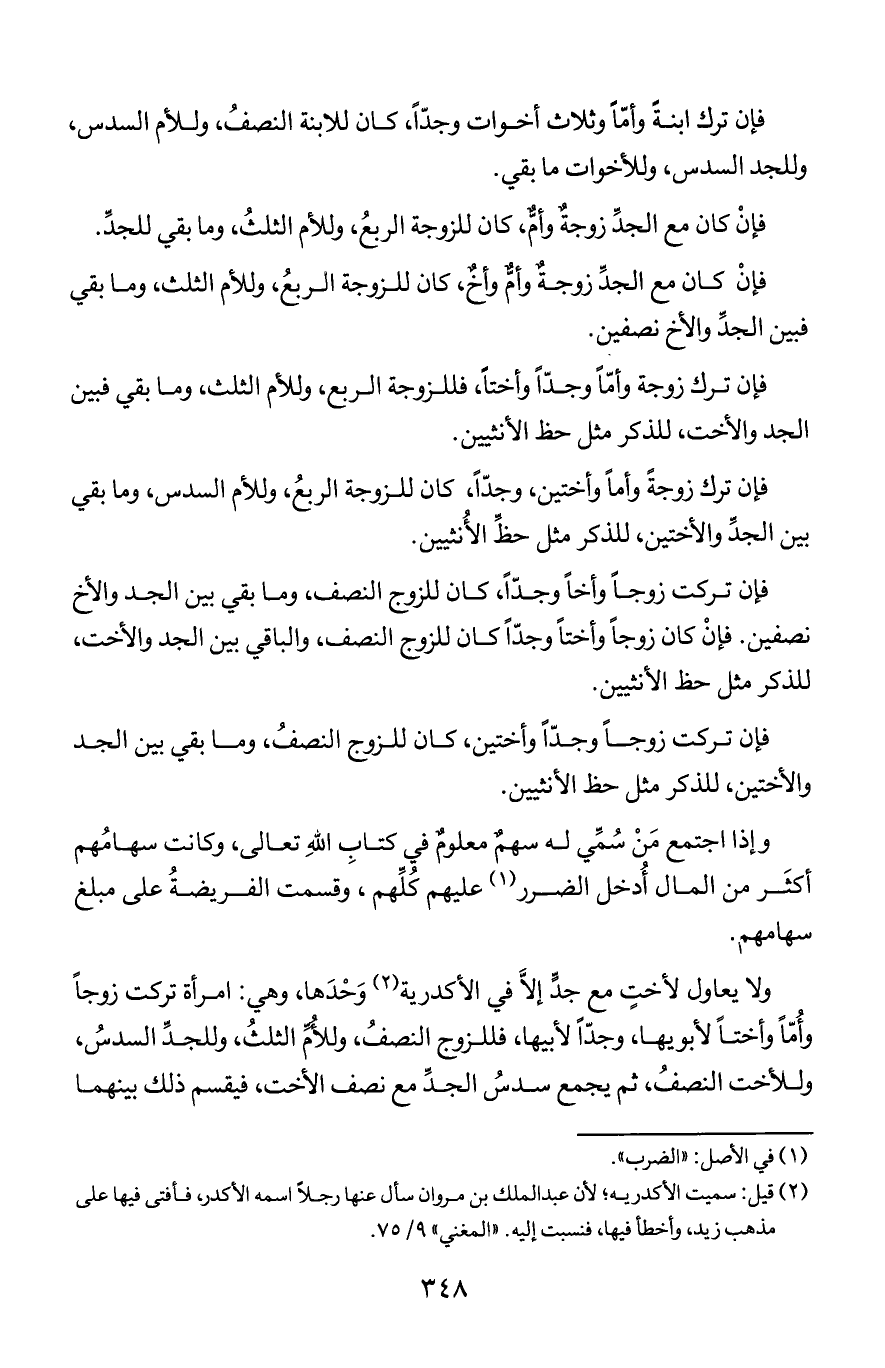 فإن ترك ابنةً وأمّاً وثلاث أخوات وجدّاً، كان للابنة النصفُ، وللأم السدس،
وللجد السدس، وللأخوات ما بقي.
فإنْ كان مع الجدِّ زوجةٌ وأمٌّ، كان للزوجة الربعُ، وللأم الثلثُ، وما بقي للجدِّ.
فإنْ كان مع الجدِّ زوجةٌ وأمٌّ وأخٌ، كان للزوجة الربعُ، وللأم الثلث، وما بقي
فبين الجدِّ والأخ نصفين.
فإن ترك زوجة وأمّاً وجدّاً وأختاً، فللزوجة الربع، وللأم الثلث، وما بقي فبين
الجد والأخت، للذكر مثل حظ الأنثيين.
فإن ترك زوجةً وأماً وأختين، وجدّاً، كان للزوجة الربعُ، وللأم السدس، وما بقي
بين الجدِّ والأختين، للذكر مثل حظِّ الأُنثيين.
فإن تركت زوجاً وأخاً وجدّاً، كان للزوج النصف، وما بقي بين الجد والأخ
نصفين. فإنْ كان زوجاً وأختاً وجدّاً كان للزوج النصف، والباقي بين الجد والأخت،
للذكر مثل حظ الأنثيين.
فإن تركت زوجاً وجدّاً وأختين، كان للزوج النصفُ، وما بقي بين الجد
والأختين، للذكر مثل حظ الأنثيين.
وإذا اجتمع مَنْ سُمِّي له سهمٌ معلومٌ في كتابِ اللهِ تعالى، وكانت سهامُهم
أكثَر من المال أُدخل الضرر(١) عليهم كُلِّهم ، وقسمت الفريضةُ على مبلغ
سهامهم.
ولا يعاول لأختٍ مع جدٍّ إلاَّ في الأكدرية(٢) وَحْدَها، وهي: امرأة تركت زوجاً
وأُمّاً وأختاً لأبويها، وجدّاً لأبيها، فللزوج النصفُ، وللأُمِّ الثلثُ، وللجدِّ السدسُ،
وللأخت النصفُ، ثم يجمع سدسُ الجدِّ مع نصف الأخت، فيقسم ذلك بينهما
(١) في الأصل: «الضرب».
(٢) قيل: سميت الأكدريه؛ لأن عبدالملك بن مروان سأل عنها رجلاً اسمه الأكدر، فأفتى فيها على
مذهب زيد، وأخطأ فيها، فنسبت إليه. «المغني» ٩/ ٧٥.
٣٤٨